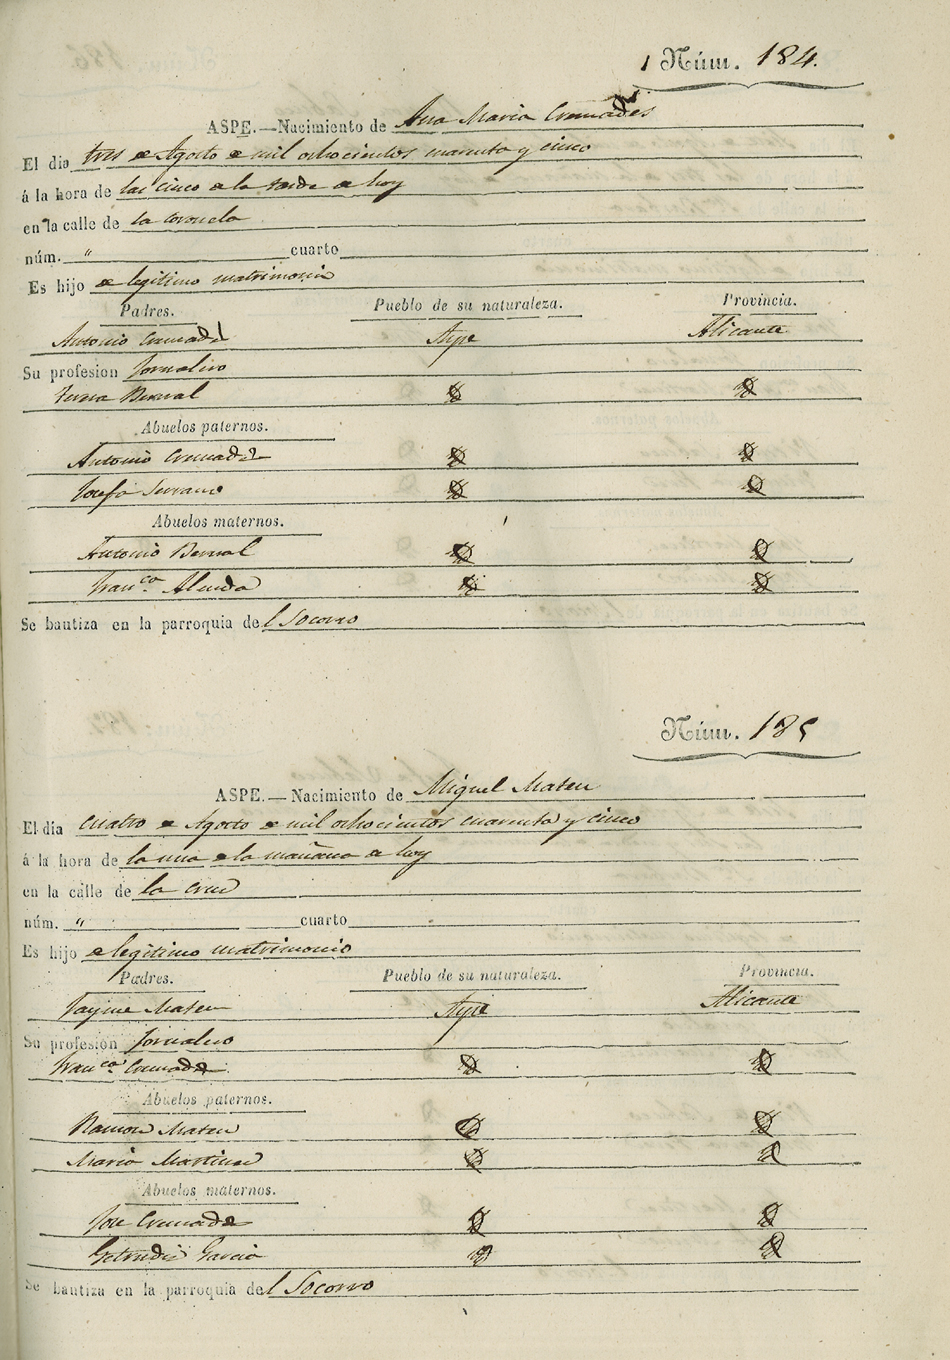 Núm. 184.
ASPE.—Nacimiento de Ana Maria Cremades
El dia tres de Agosto de mil ochocientos cuarenta y cinco
á la hora de las cinco de la tarde de hoy
en la calle de la Coronela
núm. " cuarto
Es hijo de legitimo matrimonio
Padres. Pueblo de su naturaleza. Provincia.
Antonio Cremades Aspe Alicante
Su profesion Jornalero
Teresa Bernal
Abuelos paternos.
Antonio Cremades
Josefa Serrano
Abuelos maternos.
Antonio Bernal
Fran.ca
Se bautiza en la parroquia del Socorro
Núm. 185
ASPE.—Nacimiento de Miguel Mateu
El dia cuatro de Agosto de mil ochocientos cuarenta y cinco
á la hora de la una de la mañana de hoy
en la calle de la Cruz
núm. " cuarto
Es hijo de legitimo matrimonio
Padres. Pueblo de su naturaleza. Provincia.
Jayme Mateu Aspe Alicante
Su profesion Jornalero
Fran.ca Cremades
Abuelos paternos.
Ramon Mateu
Maria Martinez
Abuelos maternos.
Jose Cremades
Getrudis Garcia
Se bautiza en la parroquia del Socorro